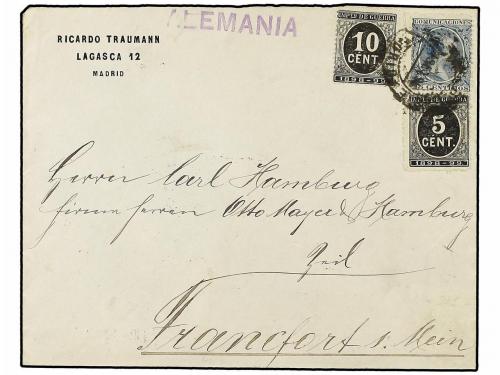 ALEMANIA
RICARDO TRAUMANN
LAGASCA 12
MADRID
IMPTO DE GUERRA
10
CENT.
1898-99
COMUNICACIONES
CENTIMOS
IMPTO DE GUERRA
5
CENT.
1898-99
Herrn Carl Hamburg
firma Herren Otto Mayer & Hamburg
Zeil
Francfort s. Mein